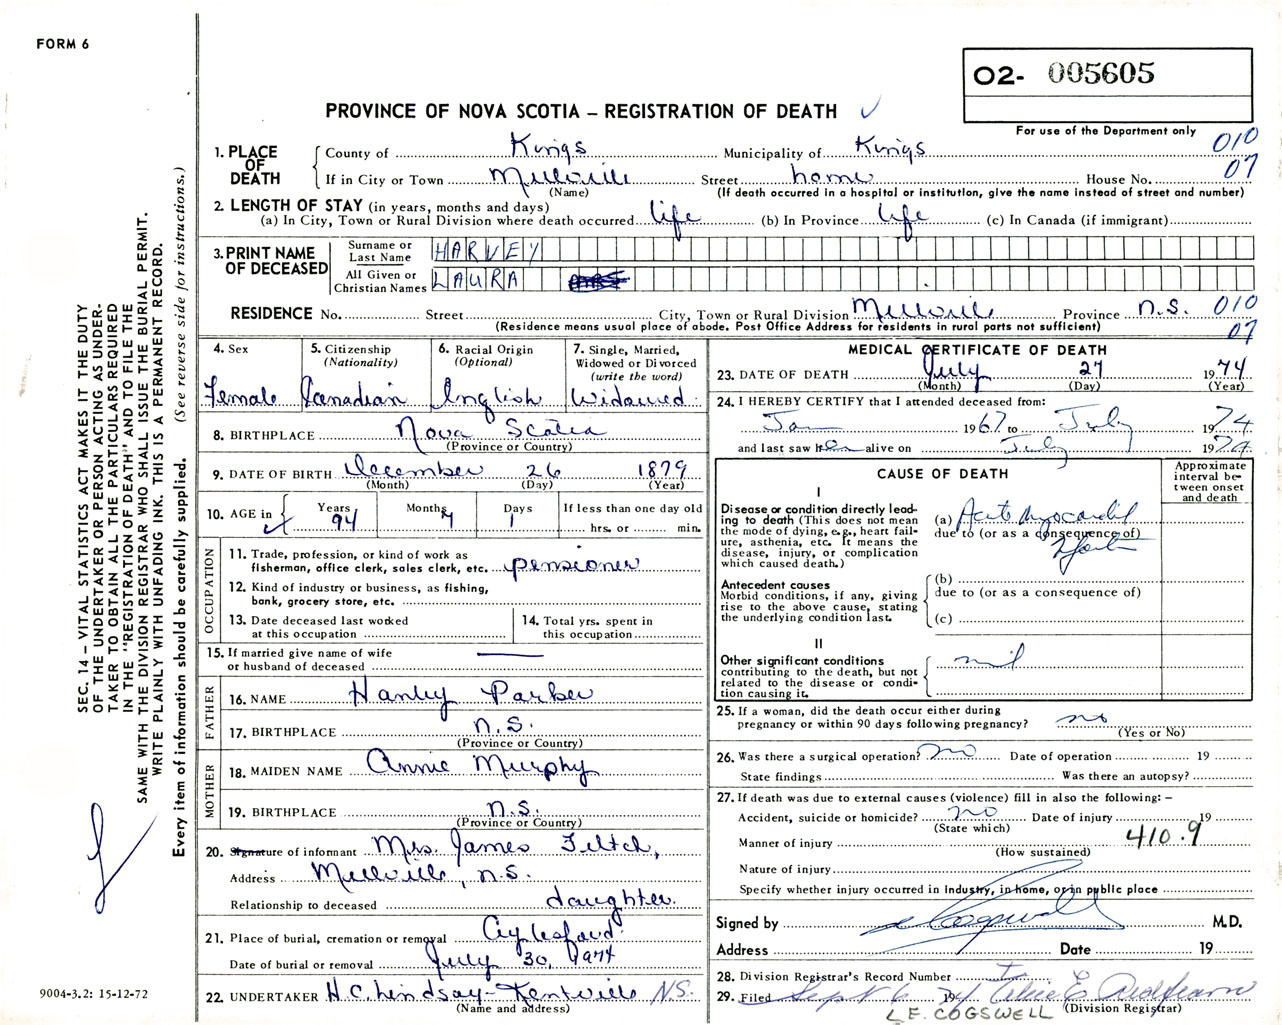 FORM 6
O2- 005605
PROVINCE OF NOVA SCOTIA – REGISTRATION OF DEATH
For use of the Department only
010
07
1. PLACE OF DEATH
County of Kings Municipality of Kings
If in City or Town Millville Street home House No.
(Name) (If death occurred in a hospital or institution, give the name instead of street and number)
2. LENGTH OF STAY (in years, months and days)
(a) In City, Town or Rural Division where death occurred life (b) In Province life (c) In Canada (if immigrant)
3. PRINT NAME OF DECEASED
Surname or Last Name HARVEY
All Given or Christian Names LAURA
RESIDENCE No. Street City, Town or Rural Division Millville Province N.S. 010
(Residence means usual place of abode. Post Office Address for residents in rural parts not sufficient) 07
4. Sex
Female
5. Citizenship
(Nationality)
Canadian
6. Racial Origin
(Optional)
English
7. Single, Married,
Widowed or Divorced
(write the word)
Widowed
8. BIRTHPLACE Nova Scotia
(Province or Country)
9. DATE OF BIRTH December 26 1879
(Month) (Day) (Year)
10. AGE in Years Months Days If less than one day old
94 7 1 hrs. or min.
OCCUPATION
11. Trade, profession, or kind of work as
fisherman, office clerk, sales clerk, etc. pensioner
12. Kind of industry or business, as fishing,
bank, grocery store, etc.
13. Date deceased last worked
at this occupation
14. Total yrs. spent in
this occupation
15. If married give name of wife
or husband of deceased
FATHER
16. NAME Hanley Parker
17. BIRTHPLACE N.S.
(Province or Country)
MOTHER
18. MAIDEN NAME Annie Murphy
19. BIRTHPLACE N.S.
(Province or Country)
20. Signature of informant Mrs. James Feltch,
Address Millville, N.S.
Relationship to deceased daughter.
21. Place of burial, cremation or removal Aylesford
Date of burial or removal July 30, 1974
22. UNDERTAKER H.C. Lindsay - Kentville N.S.
(Name and address)
MEDICAL CERTIFICATE OF DEATH
23. DATE OF DEATH July 27 1974
(Month) (Day) (Year)
24. I HEREBY CERTIFY that I attended deceased from:
Jan 1967 to July 1974
and last saw alive on July 1974
CAUSE OF DEATH
Approximate interval between onset and death
I
Disease or condition directly leading
to death (This does not mean
the mode of dying, e.g., heart failure,
asthenia, etc. It means the
disease, injury, or complication
which caused death.)
(a) Acute Myocardial
due to (or as a consequence of)
Infarction
Antecedent causes
Morbid conditions, if any, giving
rise to the above cause, stating
the underlying condition last.
(b)
due to (or as a consequence of)
(c)
II
Other significant conditions
contributing to the death, but not
related to the disease or condition
causing it.
nil
25. If a woman, did the death occur either during
pregnancy or within 90 days following pregnancy? no
(Yes or No)
26. Was there a surgical operation? no Date of operation 19
State findings Was there an autopsy?
27. If death was due to external causes (violence) fill in also the following: –
Accident, suicide or homicide? no Date of injury 19
(State which)
Manner of injury 410.9
(How sustained)
Nature of injury
Specify whether injury occurred in industry, in home, or in public place
Signed by Cogswell M.D.
Address Date 19
28. Division Registrar's Record Number
29. Filed Sept 6 1974
L.E. COGSWELL (Division Registrar)
SEC. 14 – VITAL STATISTICS ACT MAKES IT THE DUTY
OF THE UNDERTAKER OR PERSON ACTING AS UNDER-
TAKER TO OBTAIN ALL THE PARTICULARS REQUIRED
IN THE "REGISTRATION OF DEATH" AND TO FILE THE
SAME WITH THE DIVISION REGISTRAR WHO SHALL ISSUE THE BURIAL PERMIT.
WRITE PLAINLY WITH UNFADING INK. THIS IS A PERMANENT RECORD.
Every item of information should be carefully supplied. (See reverse side for instructions.)
9004-3.2: 15-12-72